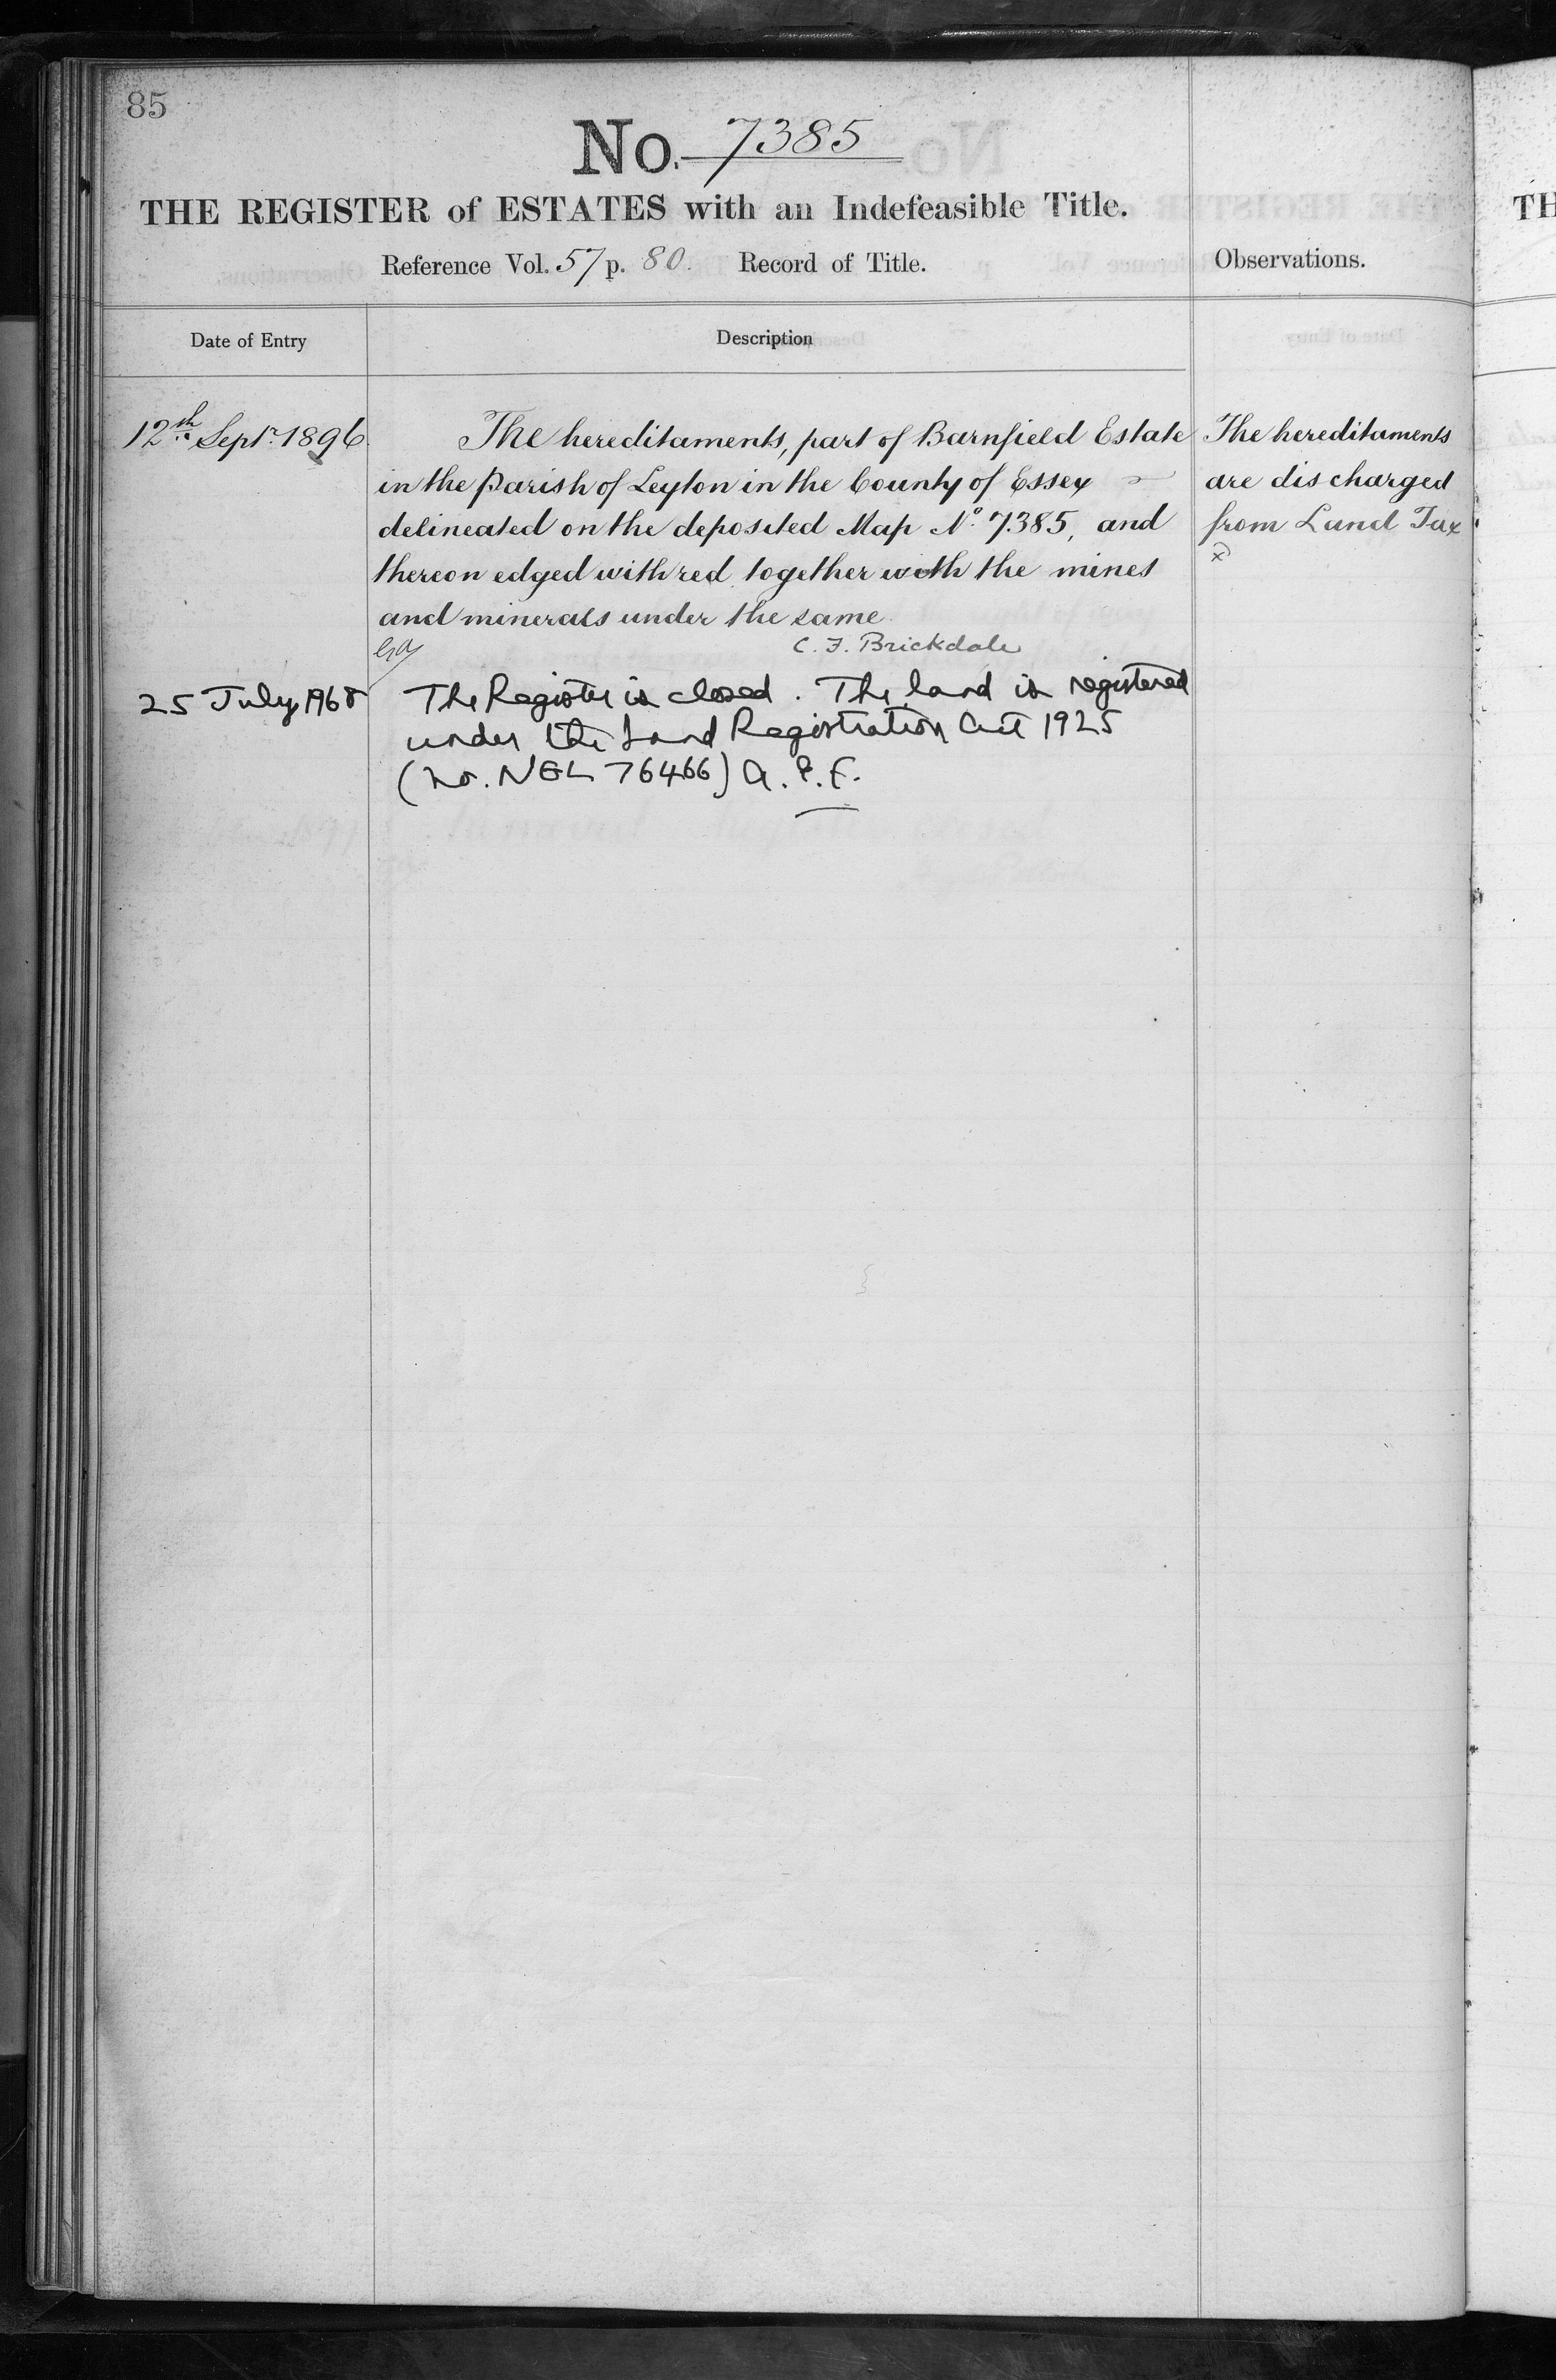 85
No. 7385
THE REGISTER of ESTATES with an Indefeasible Title.
Reference Vol. 57 p. 80. Record of Title.
Observations.
TH
Date of Entry
Description
12th Septr. 1896.
The hereditaments, part of Barnfield Estate
in the Parish of Leyton in the County of Essex
delineated on the deposited Map No. 7385, and
thereon edged with red together with the mines
and minerals under the same.
C. F. Brickdale
The hereditaments
are discharged
from Land Tax
25 July 1968
The Register is closed. The land is registered
under the Land Registration Act 1925
(No. NGL 76466) A.P.F.